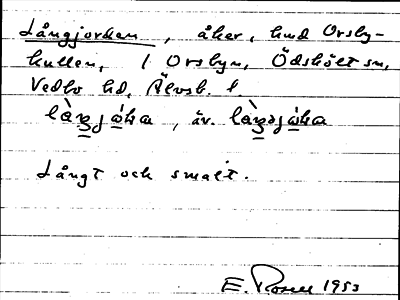 Långjorden, åker, hmd Orsby-
kullen, 1 Orsbyn, Ödskölt sn,
Vedbo hd, Älvsb. l.
làŋjo̱ka, äv. làŋsjo̱ka
Långt och smalt.
E. Rosell 1953